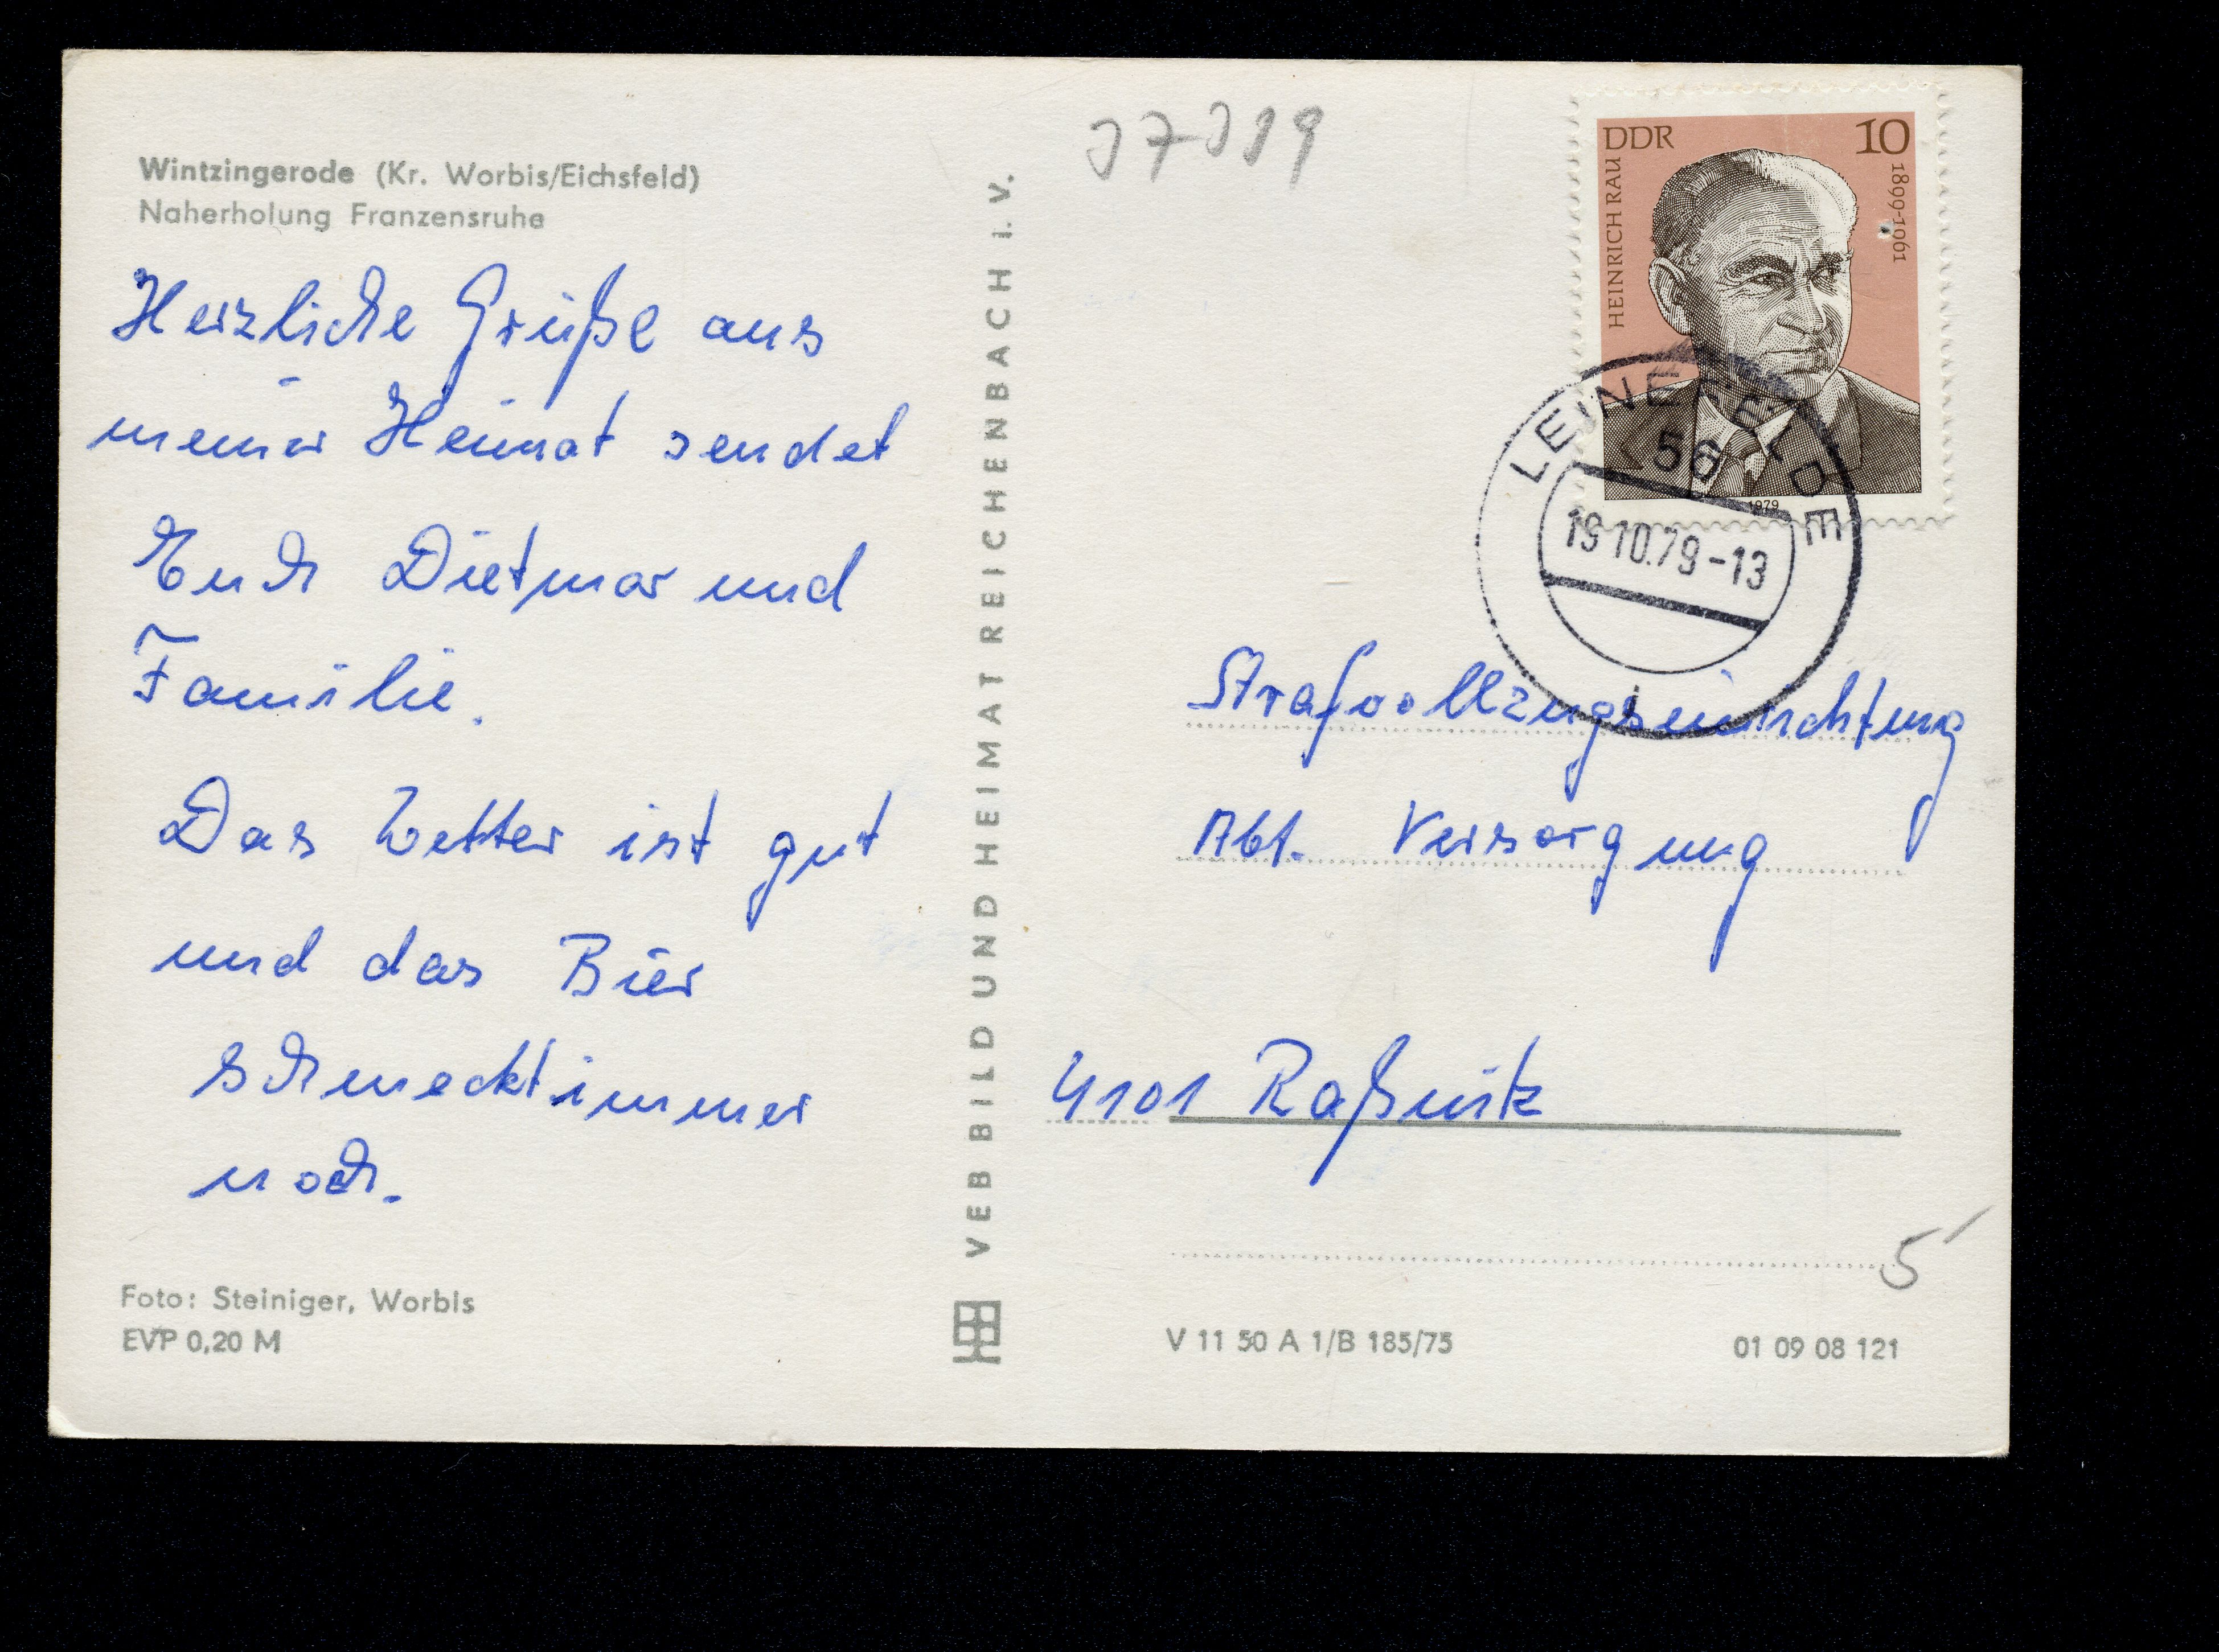 Wintzingerode (Kr. Worbis/Eichsfeld)
Naherholung Franzensruhe
Herzliche Grüße aus
meiner Heimat sendet
Euch Dietmar und
Familie.
Das Wetter ist gut
und das Bier
schmeckt immer
noch.
Foto: Steiniger, Worbis
EVP 0,20 M
VEB BILD UND HEIMAT REICHENBACH I. V.
DDR 10
HEINRICH RAU
1899-1961
1979
LEINEFELDE
56
19.10.79-13
Strafvollzugseinrichtung
Abt. Versorgung
4101 Raßnitz
5
V 11 50 A 1/B 185/75
01 09 08 121